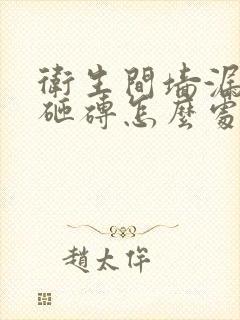 衛生間墻漏
砸磚怎麼處
趙太侔